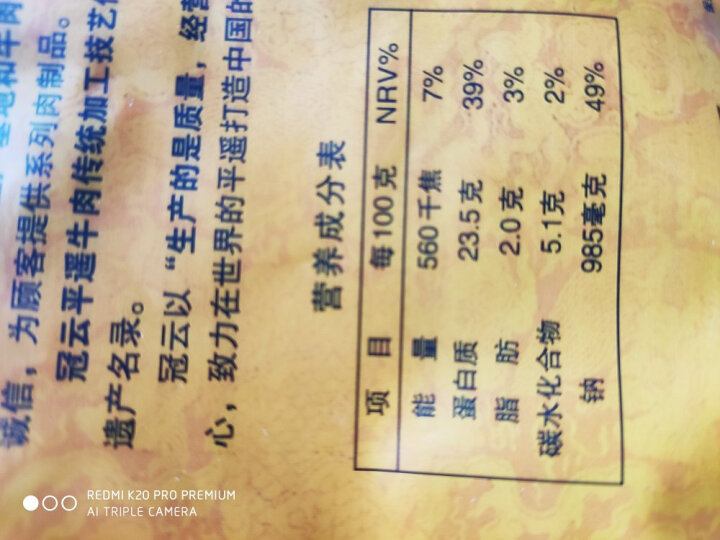 基地和牛肉
诚信，为顾客提供系列肉制品。
冠云平遥牛肉传统加工技艺
遗产名录。
冠云以“生产的是质量，经营
心，致力在世界的平遥打造中国的
营养成分表
项 目 每100克 NRV%
能 量 560千焦 7%
蛋白质 23.5克 39%
脂 肪 2.0克 3%
碳水化合物 5.1克 2%
钠 985毫克 49%
REDMI K20 PRO PREMIUM
AI TRIPLE CAMERA